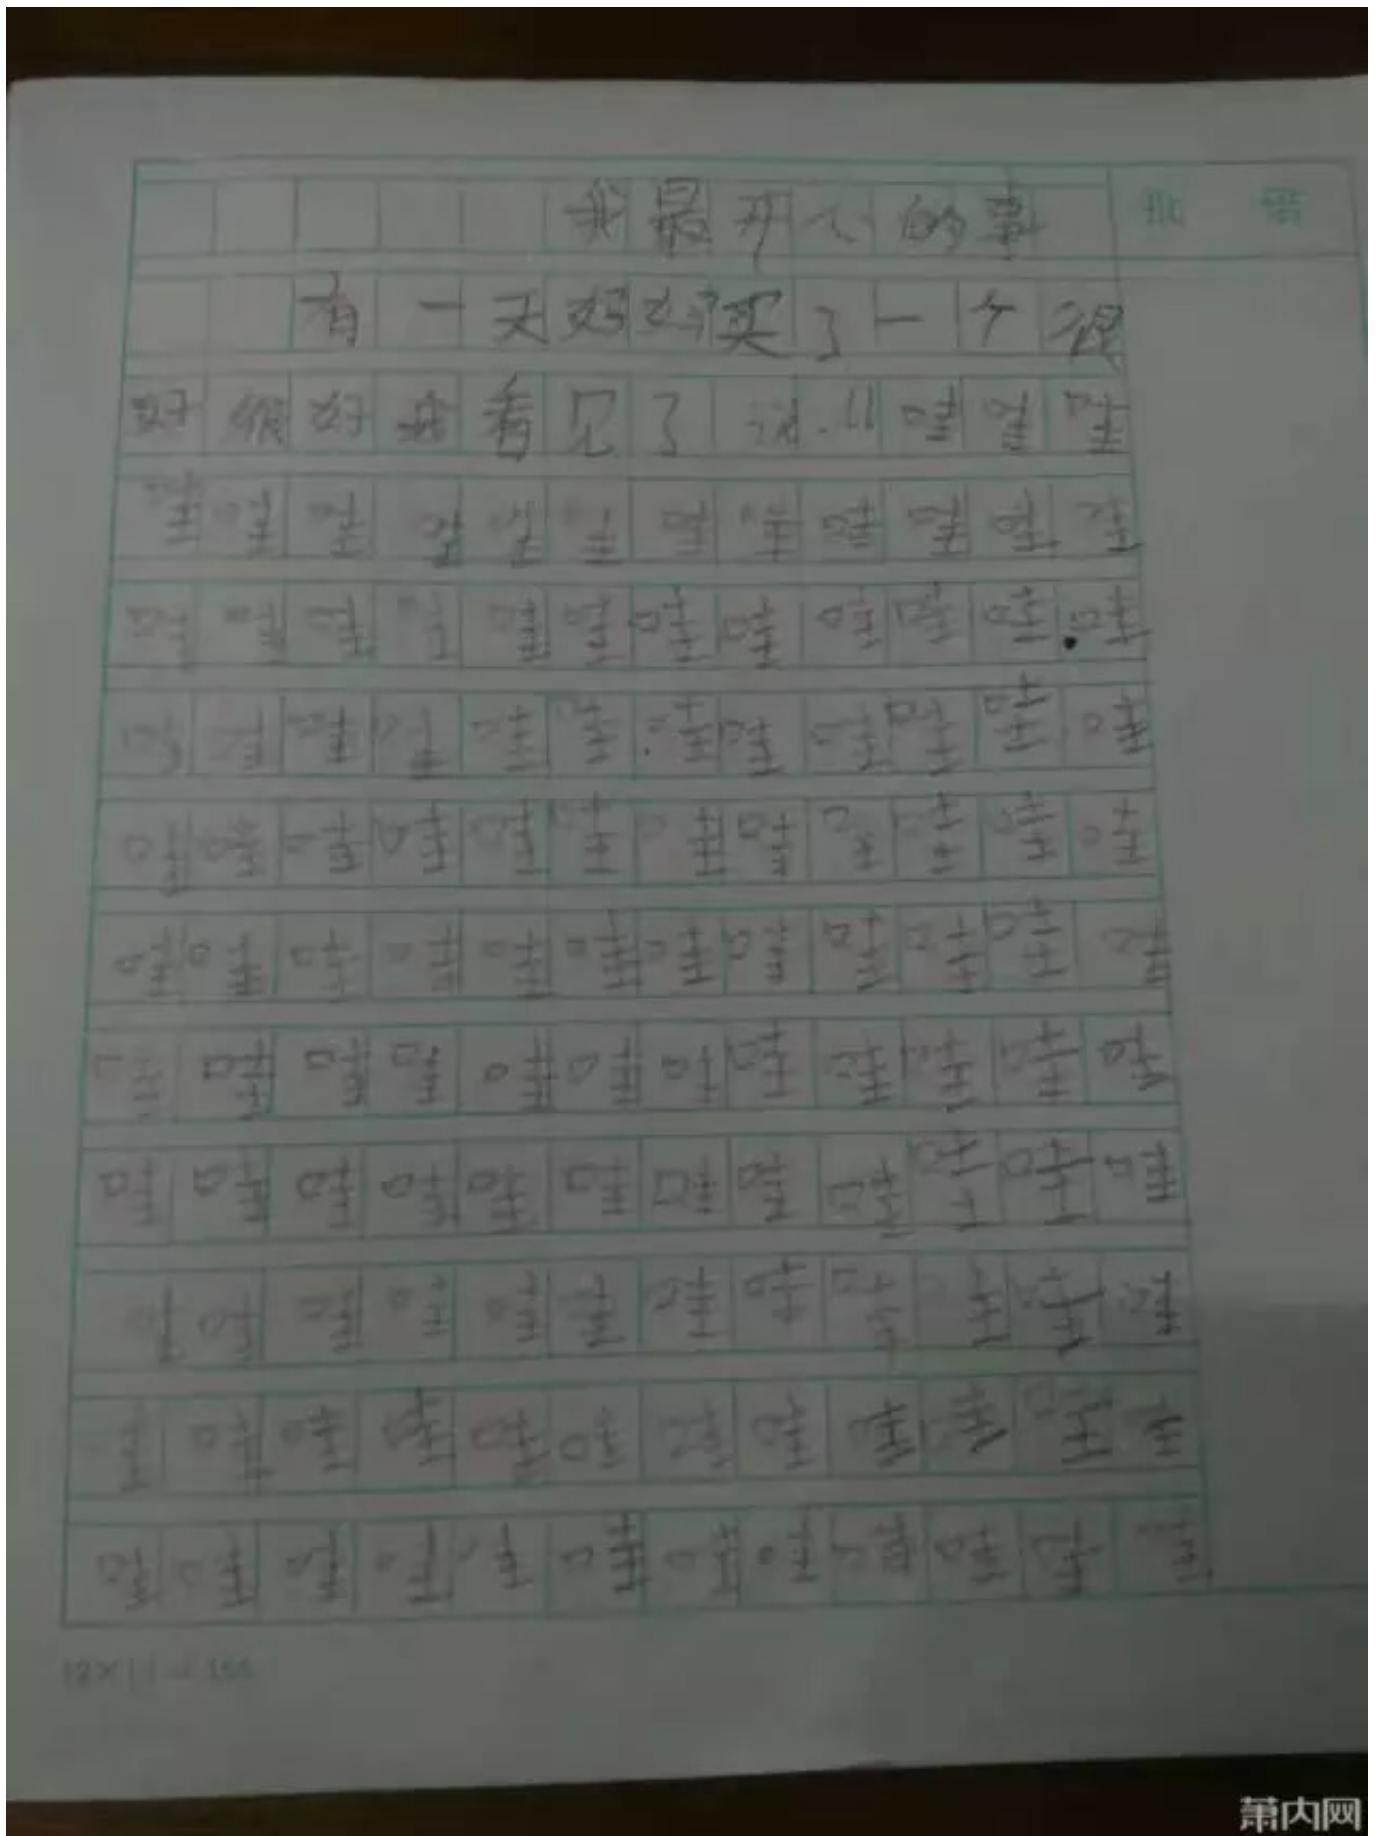 我最开心的事
批 语
有一天妈妈买了一个很
好很好我看见了说:“哇哇哇
哇哇哇哇哇哇哇哇哇哇哇哇
哇哇哇哇哇哇哇哇哇哇哇哇
哇哇哇哇哇哇哇哇哇哇哇哇
哇哇哇哇哇哇哇哇哇哇哇哇
哇哇哇哇哇哇哇哇哇哇哇哇
哇哇哇哇哇哇哇哇哇哇哇哇
哇哇哇哇哇哇哇哇哇哇哇哇
哇哇哇哇哇哇哇哇哇哇哇哇
哇哇哇哇哇哇哇哇哇哇哇哇
哇哇哇哇哇哇哇哇哇哇哇哇
萧内网